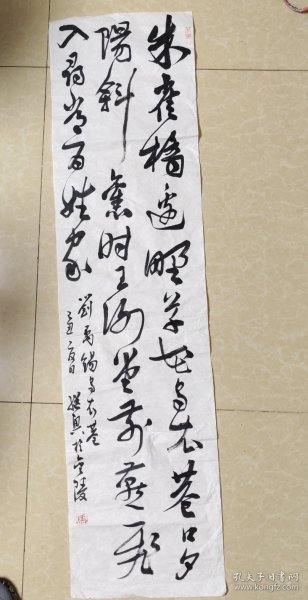 朱雀橋邊野草花烏衣巷口夕
陽斜舊時王謝堂前燕飛
入尋常百姓家
劉禹錫烏衣巷
於金陵
孔夫子旧书网